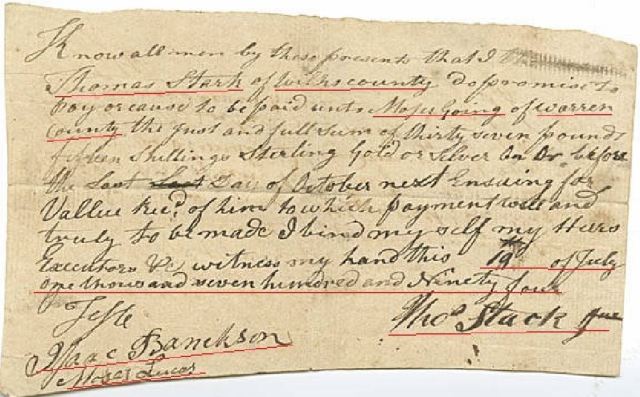 Know all men by these presents that I
Thomas Stark of wilkscounty do promise to
pay or cause to be paid unto Moses Going of warren
County the Just and full Sum of thirty seven pounds
fifteen Shillings Sterling Gold or Silver on Or before
the Last Last Day of October next Ensuing for
Vallue Recd. of him to which payment well and
truly to be made I bind my self my Heirs
Executors &c witness my hand this 19th of July
one thousand and seven hundred and Ninety four
Teste
Thos Stark Jur
Isaac Banckson
Moses Lucas